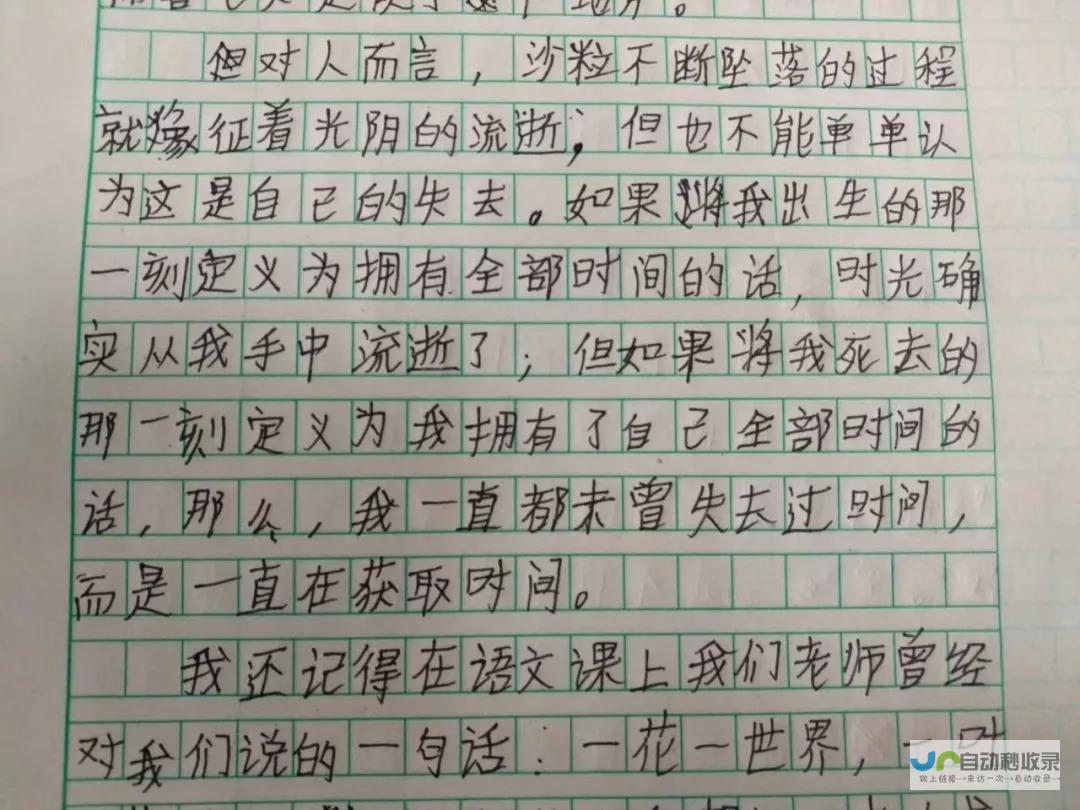 但对人而言，沙粒不断坠落的过程
就像征着光阴的流逝；但也不能单单认
为这是自己的失去。如果将我出生的那
一刻定义为拥有全部时间的话，时光确
实从我手中流逝了；但如果将我死去的
那一刻定义为我拥有了自己全部时间的
话，那么，我一直都未曾失去过时间，
而是一直在获取时间。
我还记得在语文课上我们老师曾经
对我们说的一句话：一花一世界，一叶
自动秒收录
做上链接→来访一次→自动收录